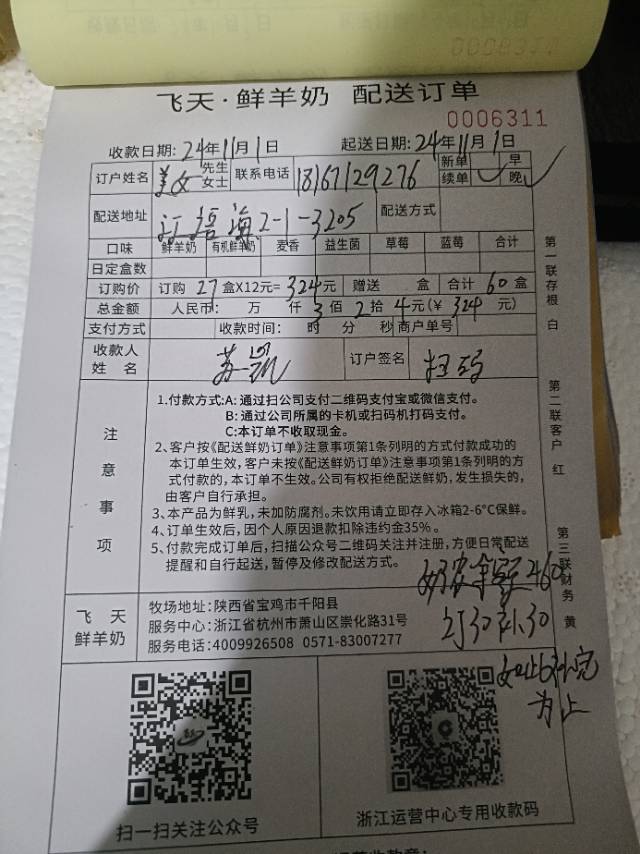 飞天·鲜羊奶 配送订单
0006311
收款日期: 24年11月1日 起送日期: 24年11月1日
订户姓名 美女 先生 女士 联系电话 18167129276 新单 续单 早 晚
配送地址 2-1-3205 配送方式
口味 鲜羊奶 有机鲜羊奶 麦香 益生菌 草莓 蓝莓 合计
日定盒数
订购价 订购 27 盒X12元= 324元 赠送 盒 合计 60 盒
总金额 人民币: 万 仟 3 佰 2 拾 4 元(￥ 324 元)
支付方式 收款时间: 时 分 秒 商户单号
收款人姓名 苏凯 订户签名 扫码
注意事项
1.付款方式:A: 通过扫公司支付二维码支付宝或微信支付。
B: 通过公司所属的卡机或扫码机打码支付。
C:本订单不收取现金。
2、客户按《配送鲜奶订单》注意事项第1条列明的方式付款成功的
本订单生效，客户未按《配送鲜奶订单》注意事项第1条列明的方
式付款的，本订单不生效。公司有权拒绝配送鲜奶，发生损失的，
由客户自行承担。
3、本产品为鲜乳，未加防腐剂。未饮用请立即存入冰箱2-6°C保鲜。
4、订单生效后，因个人原因退款扣除违约金35%。
5、付款完成订单后，扫描公众号二维码关注并注册，方便日常配送
提醒和自行起送，暂停及修改配送方式。
460
订30补30
补完
为止
飞天
鲜羊奶
牧场地址:陕西省宝鸡市千阳县
服务中心:浙江省杭州市萧山区崇化路31号
服务电话:4009926508 0571-83007277
扫一扫关注公众号
浙江运营中心专用收款码
第一联存根 白
第二联客户 红
第三联财务 黄